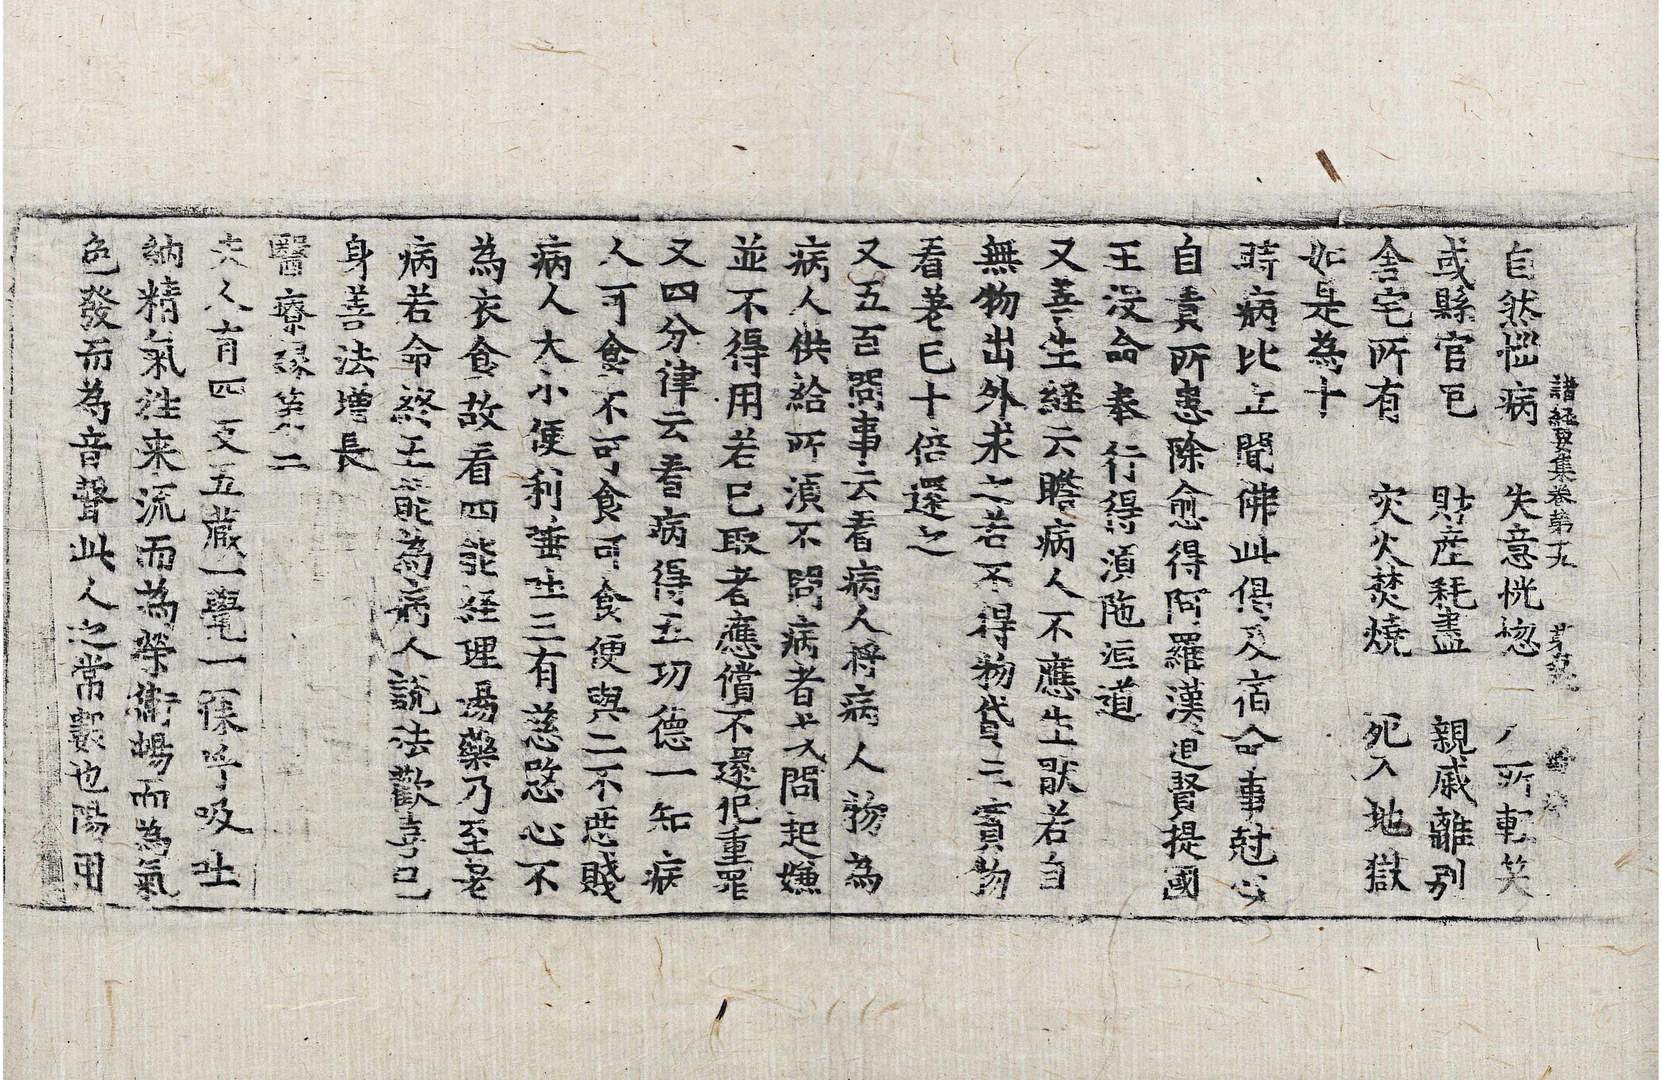 諸經要集卷第十九
自然惱病　失意恍惚　人所輕笑
或縣官厄　財産耗盡　親戚離别
舍宅所有　灾火焚燒　死入地獄
如是為十
時病比丘聞佛此偈及宿命事尅心
自責所患除愈得阿羅漢道賢提國
王没命奉行得湏陁洹道
又善生経云瞻病人不應生猒若自
無物出外求之若不得物貸三寶物
看差已十倍還之
又五百問事云看病人將病人物為
病人供給所湏不問病者或問起嫌
並不得用若已取者應償不還犯重罪
又四分律云看病得五功德一知病
人可食不可食可食便與二不惡賤
病人大小便利唾吐三有慈愍心不
為衣食故看四能経理湯藥乃至差
病若命終五能為病人說法歡喜己
身善法增長
醫療緣第二
夫人有四支五藏一覺一寐呼吸吐
納精氣往来流而為榮衛暢而為氣
色發而為音聲此人之常數也陽用